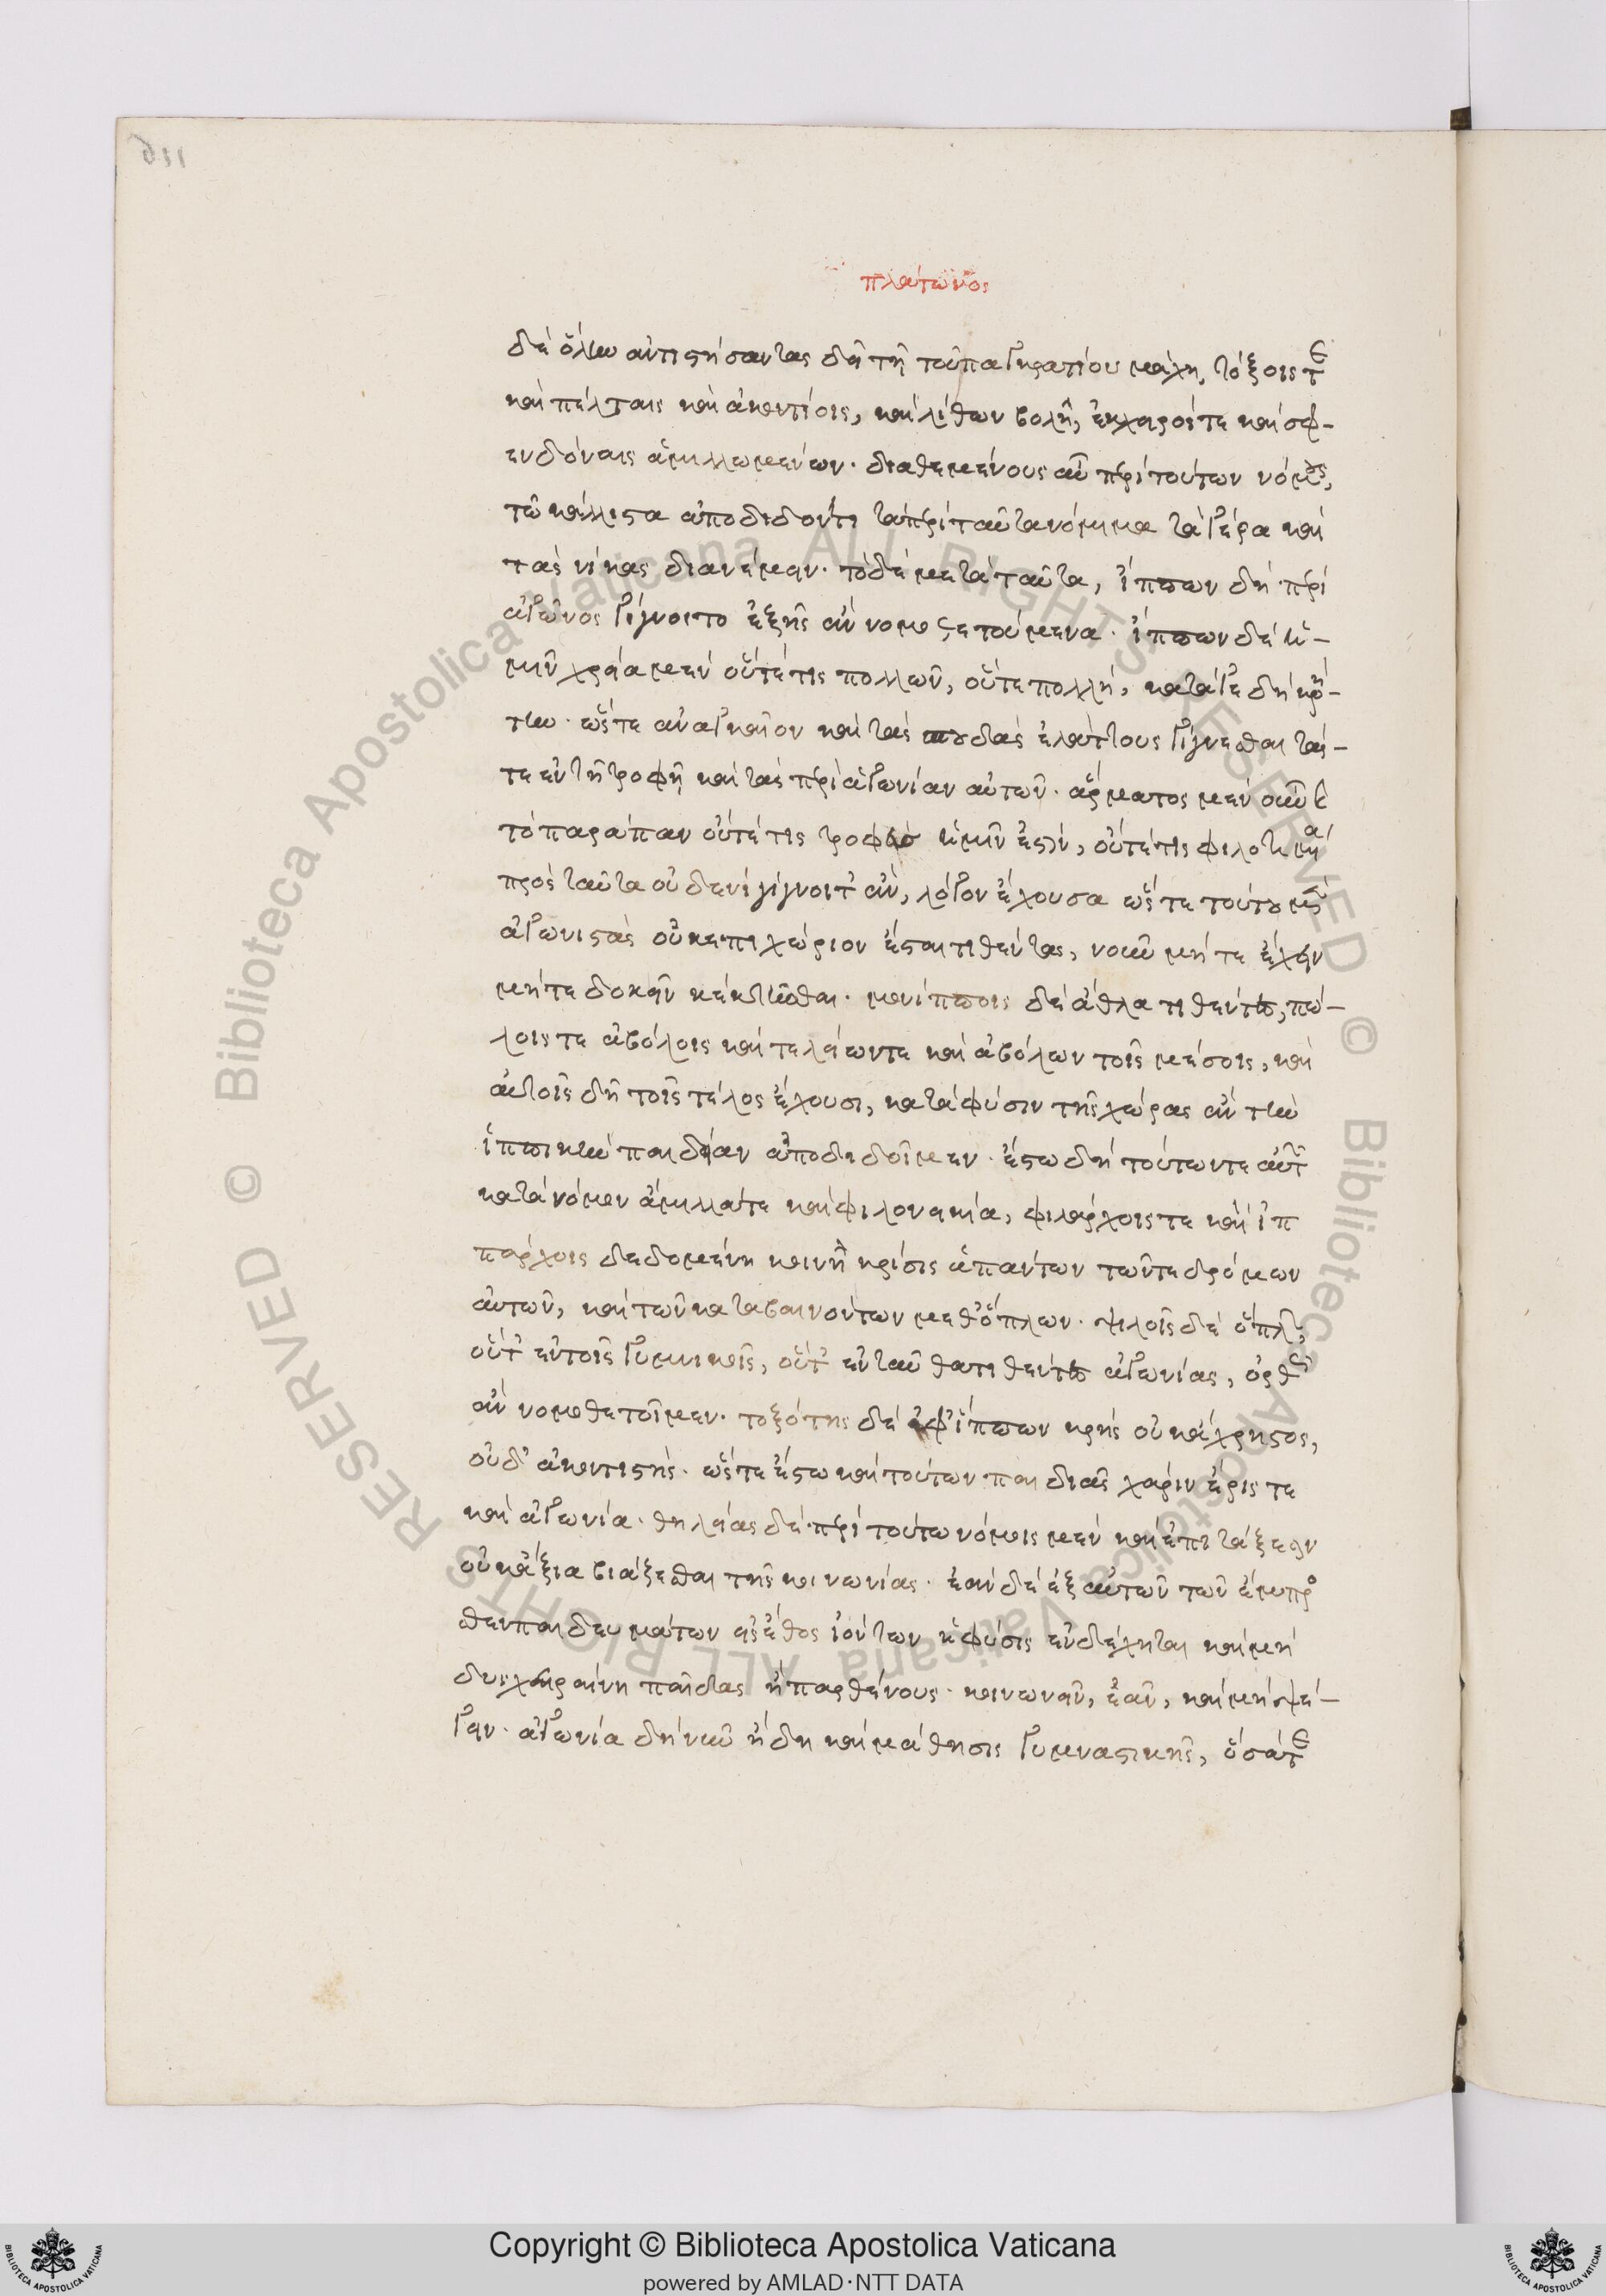 πλάτωνος
δὲ ὅλην ἀντιστήσαντας δεῖ τῇ τοῦ παγκρατίου μάχῃ, τόξοις τε
καὶ πέλταις καὶ ἀκοντίοις, καὶ λίθων βολῇ, ἐκ χειρός τε καὶ σφ-
ενδόναις ἁμιλλωμένων· διαθεμένους αὖ περὶ τούτων νόμους,
τῷ κάλλιστα ἀποδιδόντι τὰ περὶ ταῦτα νόμιμα τὰ γέρα καὶ
τὰς νίκας διανέμειν· τὸ δὲ μετὰ ταῦτα, ἵππων δὴ περὶ
ἀγῶνος γίγνοιτο ἑξῆς ἂν νομοθετούμενα· ἵππων δὲ ἡ-
μῖν χρεία μὲν οὔτέ τις πολλῶν, οὔτε πολλή, κατά γε δὴ κρή-
την· ὥστε ἀναγκαῖον καὶ τὰς σπουδὰς ἐλάττους γίγνεσθαι τάς-
τε ἐν τῇ τροφῇ καὶ τὰς περὶ ἀγωνίαν αὐτῶν· ἅρματος μὲν οὖν καὶ
τὸ παράπαν οὔτέ τις τροφεὺς ἡμῖν ἐστίν, οὔτέ τις φιλοτιμία
πρὸς ταῦτα οὐδενὶ γίγνοιτ' ἂν, λόγον ἔχουσα ὥστε τούτου μὲν
ἀγωνιστὰς οὐκ ἐπιχώριον ἔσται τιθέντας, νοῦν μήτε ἔχειν
μήτε δοκεῖν κεκτῆσθαι· μονίπποις δὲ ἆθλα τιθέντες, πώ-
λοις τε ἀβόλοις καὶ τελείων τε καὶ ἀβόλων τοῖς μέσοις, καὶ
αὐτοῖς δὴ τοῖς τέλος ἔχουσι, κατὰ φύσιν τῆς χώρας ἂν τὴν
ἱππικὴν παιδείαν ἀποδιδοῖμεν· ἔστω δὴ τούτων τε αὐτῶν
κατὰ νόμον ἅμιλλά τε καὶ φιλονεικία, φυλάρχοις τε καὶ ἱπ
πάρχοις δεδομένη κοινὴ κρίσις ἁπάντων τῶν τε δρόμων
αὐτῶν, καὶ τῶν καταβαινόντων μεθ' ὅπλων· ψιλοῖς δὲ ὅπλων,
οὔτ' ἐν τοῖς γυμνικοῖς, οὔτ' ἐνταῦθα τιθέντες ἀγωνίας, ὀρθῶς
ἂν νομοθετοῖμεν· τοξότης δὲ ἀφ' ἵππων κρὴς οὐκ ἄχρηστος,
οὐδ' ἀκοντιστής· ὥστε ἔστω καὶ τούτων παιδιᾶς χάριν ἔρις τε
καὶ ἀγωνία· θηλείας δὲ περὶ τούτων νόμοις μὲν καὶ ἐπιτάξεσιν
οὐκ ἄξια βιάζεσθαι τῆς κοινωνίας· ἐὰν δὲ ἐξ αὐτῶν τῶν ἔμπρο
σθεν παιδευμάτων εἰς ἔθος ἰόντων ἡ φύσις ἐνδέχηται καὶ μὴ
δυσχεραίνῃ παῖδας ἢ παρθένους· κοινωνεῖν, ἐᾶν, καὶ μὴ ψέ-
γειν· ἀγωνία δὴ νῦν ἤδη καὶ μάθησις γυμναστικῆς, ὅσα τε